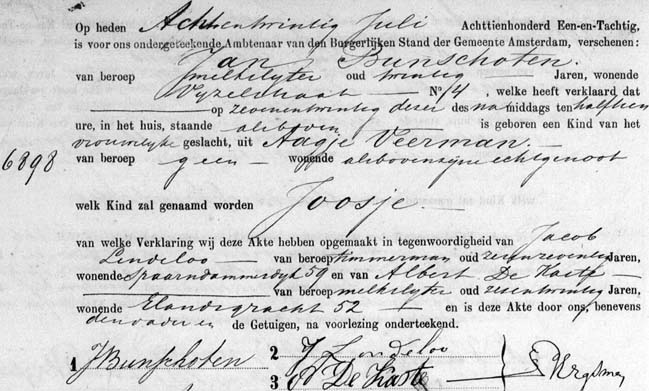 Op heden Achtentwintig Juli Achttienhonderd Een-en-Tachtig,
is voor ons ondergeteekende Ambtenaar van den Burgerlijken Stand der Gemeente Amsterdam, verschenen:
Jan Bunschoten.
van beroep melkslijter oud twintig Jaren, wonende
Vijzelstraat No 14, welke heeft verklaard dat
op zevenentwintig dezer des namiddags ten half tien
ure, in het huis, staande alsboven is geboren een Kind van het
vrouwelijke geslacht, uit Aagje Veerman
6898
van beroep geen wonende alsboven zijne echtgenoot
welk Kind zal genaamd worden Joosje
van welke Verklaring wij deze Akte hebben opgemaakt in tegenwoordigheid van Jacob
van beroep timmerman oud Jaren,
wonende Spaarndammerdijk 59 en van Albert De
van beroep melkslijter oud zesentwintig Jaren,
wonende Elandsgracht 52 en is deze Akte door ons, benevens
den vader en de Getuigen, na voorlezing onderteekend.
1 J Bunschoten 2 J
3 A De